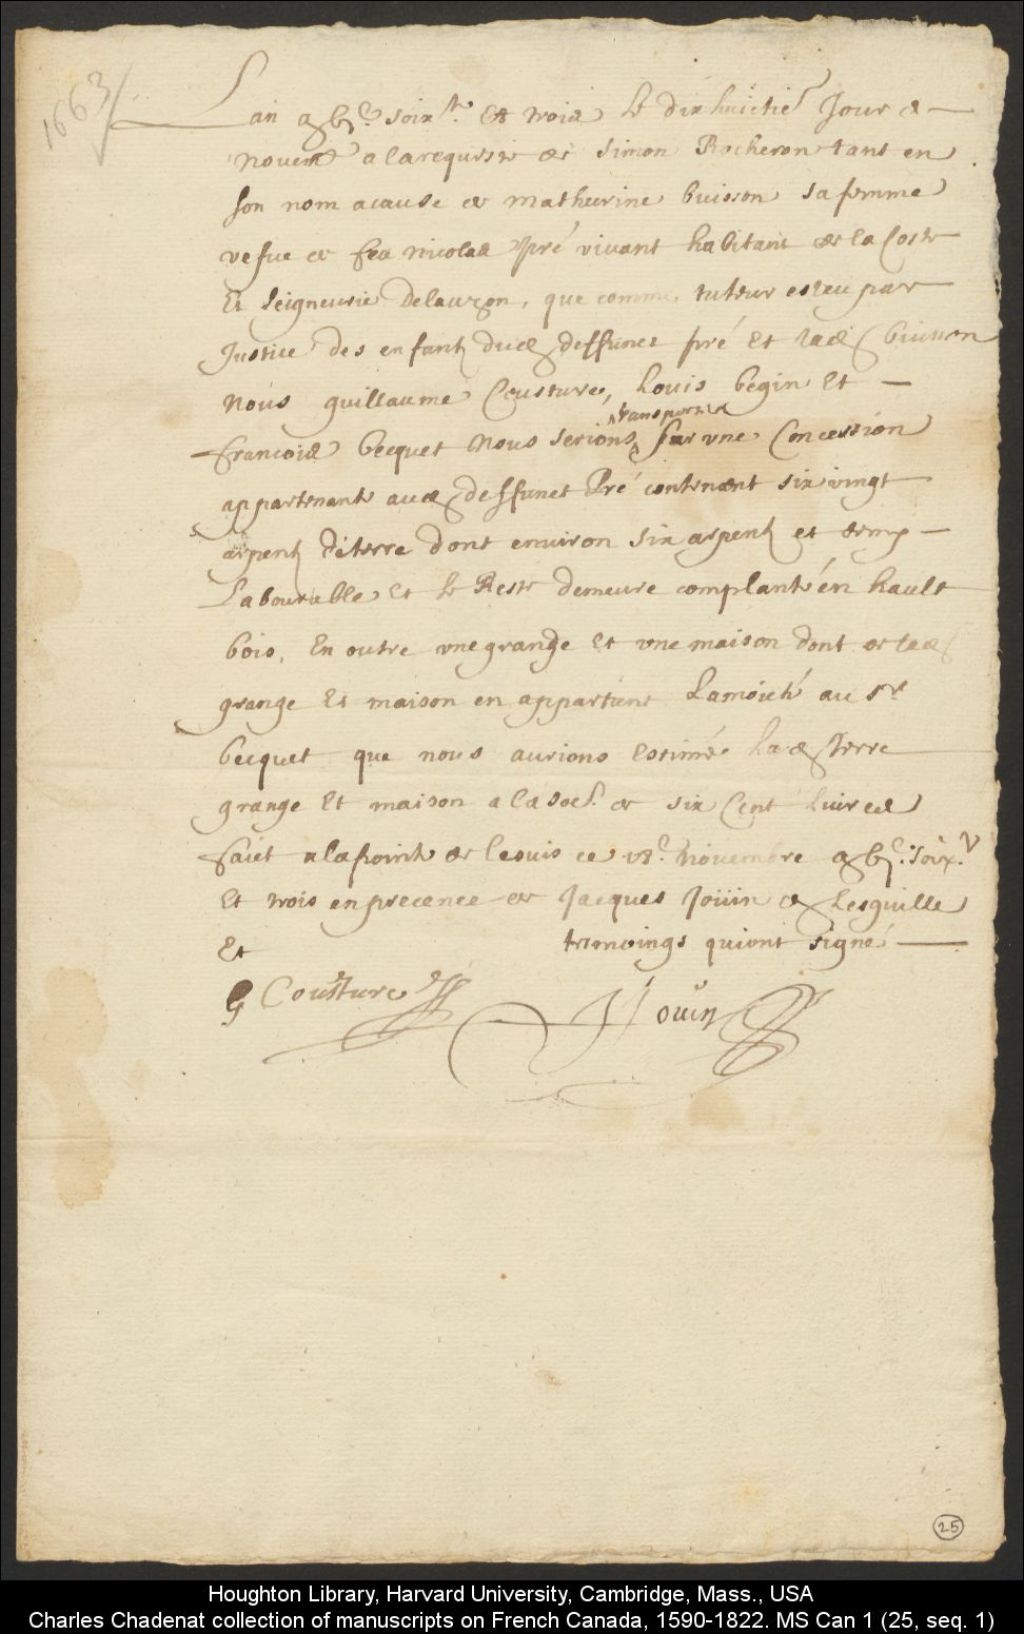 1663
Lan gbjC soixte Et trois le dix huictie Jour de
novemb a la requeste de simon Rocheron tant en
son nom a cause de mathurine buisson sa femme
vefue de feu nicolas pré vivant habitant de la Coste
Et seigneurie Delauzon, que comme tuteur esleu par
Justice des enfantz dud deffunct pré Et lad buisson
nous guillaume Cousture, Louis begin Et
francois becquet nous serions transportez sur une Concession
appartenante aud deffunct Pré contenant six vingt
arpentz de terre dont environ six arpentz et demy
Labourable Et le Reste demeure complanté en hault
bois, En outre une grange Et une maison dont de lad
grange Et maison en appartient Lamoitié au sr
becquet que nous aurions Estimé Lad terre
grange Et maison a la soe de six Cent Livres
faict a la pointe de Levis ce 18e novembre gbjC soixte
Et trois en presence de Jacques Jouin de Lesguille
Et tesmoings qui ont signé
G Cousture J Jouin
25
Houghton Library, Harvard University, Cambridge, Mass., USA
Charles Chadenat collection of manuscripts on French Canada, 1590-1822. MS Can 1 (25, seq. 1)